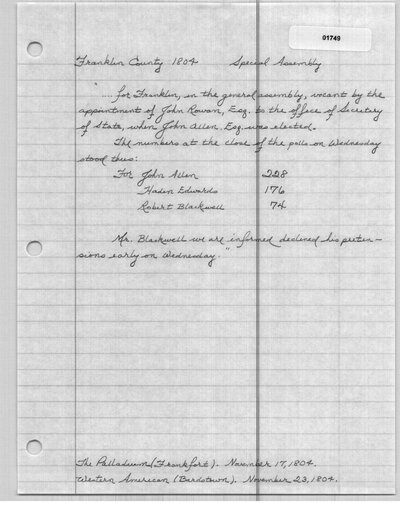 01749
Franklin County 1804 Special Assembly
".... for Franklin, in the general assembly, vacant by the
appointment of John Rowan, Esq. to the office of Secretary
of State, when John Allen, Esq. was elected.
The numbers at the close of the polls on Wednesday
stood thus:
For John Allen 228
Haden Edwards 176
Robert Blackwell 74
Mr. Blackwell we are informed declined his preten-
sions early on Wednesday."
The Palladium (Frankfort). November 17, 1804.
Western American (Bardstown). November 23, 1804.